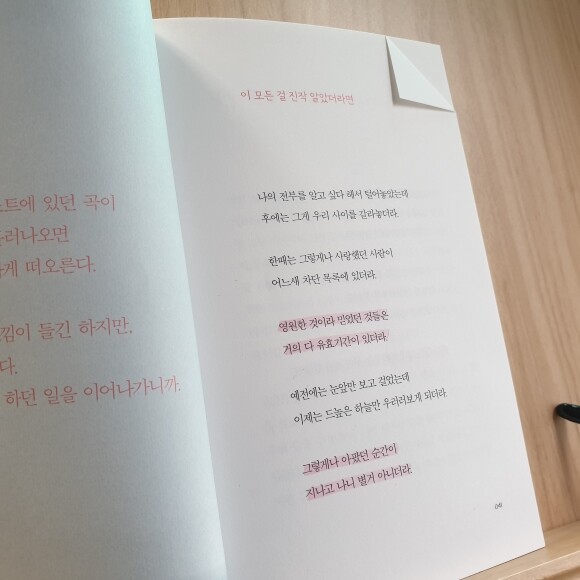 스트에 있던 곡이
흘러나오면
게 떠오른다.
낌이 들긴 하지만,
다.
하던 일을 이어나가니까.
이 모든 걸 진작 알았더라면
나의 전부를 알고 싶다 해서 털어놓았는데
후에는 그게 우리 사이를 갈라놓더라.
한때는 그렇게나 사랑했던 사람이
어느새 차단 목록에 있더라.
영원한 것이라 믿었던 것들은
거의 다 유효기간이 있더라.
예전에는 눈앞만 보고 걸었는데
이제는 드높은 하늘만 우러러보게 되더라.
그렇게나 아팠던 순간이
지나고 나니 별거 아니더라.